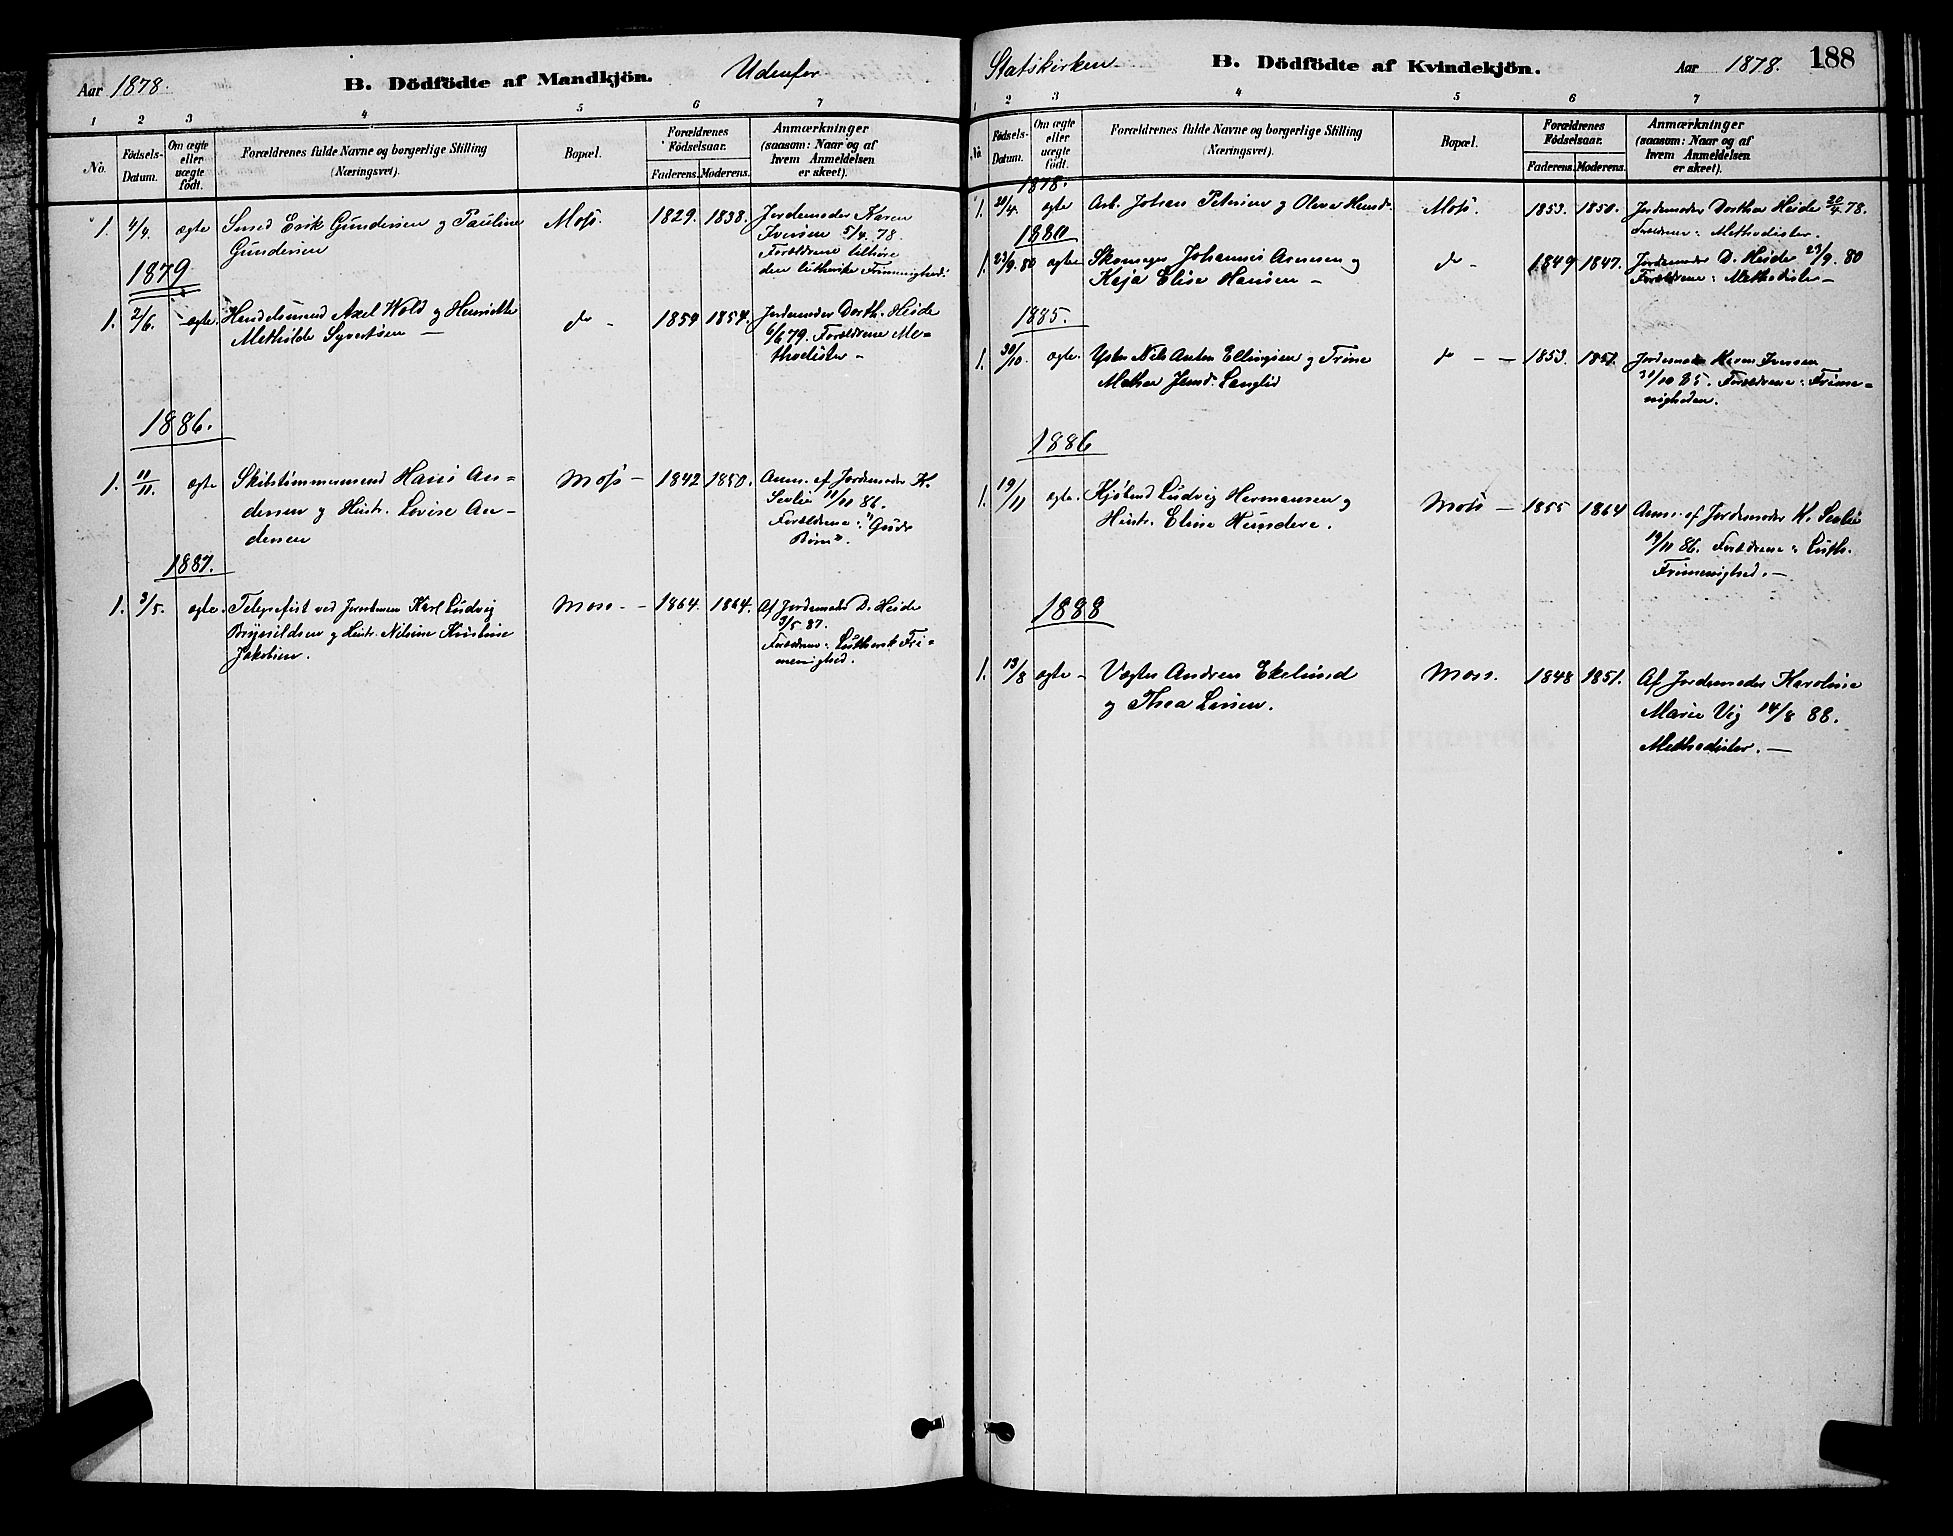 Aar 1878. B. Dödfödte af Mandkjön. Udenfor
1 2 3 4 5 6 7
No. Födsels-Datum. Om ægte eller uægte födt. Forældrenes fulde Navne og borgerlige Stilling (Næringsvei). Bopæl. Forældrenes Födselsaar. Faderens. Moderens. Anmærkninger (saasom: Naar og af hvem Anmeldelsen er skeet).
1. 4/4. ægte Smed Erik Gundersen og Pauline Moss. 1829. 1838. Jordemoder Karen
Gundersen Iversen 5/4 78.
Forældrene tilhøre
den lutherske Frimenighed.
1879
1. 2/6. ægte. Handelsmand Axel Wold og Henriette do - 1854 1854. Jordemoder Dorth. Heide
Mathilde Syvertsen — 6/6 79. Forældrene Me-
thodister -
1886.
1. 11/11. ægte Skibstømmermand Hans An- Moss - 1842 1850. Anm. af Jordemoder K.
dersen og Hustr. Lovise An- Sevlie 11/11 86.
dersen Forældrene: "Guds
Børn".
1887.
1. 3/5. ægte. Telegrafist ved Jernbanen Karl Ludvig Moss - - 1864. 1864. Af Jordemoder D. Heide
Brynildsen og Hustr. Nilsine Kristine 3/5 87.
Jakobsen. Forældrene: Luthersk Fri-
menighed.
Statskirken. B. Dödfödte af Kvindekjön. Aar 1878. 188
1 2 3 4 5 6 7
No. Födsels-Datum. Om ægte eller uægte födt. Forældrenes fulde Navne og borgerlige Stilling (Næringsvei). Bopæl. Forældrenes Födselsaar. Faderens. Moderens. Anmærkninger (saasom: Naar og af hvem Anmeldelsen er skeet).
1878.
1. 20/4. ægte Arb. Johan Petersen og Olava Hansd. Moss. 1853. 1850. Jordemoder Dorthea Heide 20/4 78.
Forældrene: Methodister.
1880
1. 23/9. 80 ægte Skomager Johannes Arnesen og do - 1849 1847. Jordemoder D. Heide 23/9. 80
Kaja Elise Hansen - Forældrene: Methodister -
1885.
1. 30/10. ægte. Nils Anton Ellingsen og Trine do - - 1853. Jordemoder Karen Iversen
Mathea Jensd. 31/10 85. Forældrene: Frime-
nigheden.
1886
1. 19/11 ægte. Kjøbmd Ludvig Hermansen og Moss - 1855 1864 Anm. af Jordemoder K. Sevlie
Hustr. Elise Hundere. 19/11 86. Forældrene: Luth.
Frimenighed. -
1888
1. 13/8 ægte - Vægter Andreas Ekelund Moss. 1848 1851. Af Jordemoder Karoline
og Thea Larsen. Marie Vig 14/8 88.
Methodister. -